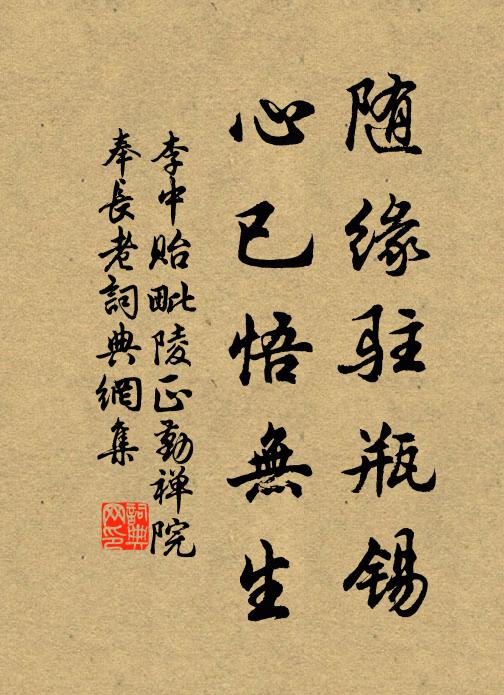 随緣駐瓶锡
心已悟無生
李中貽毗陵正勤禅院
奉長老詞典網集
詞典
网印